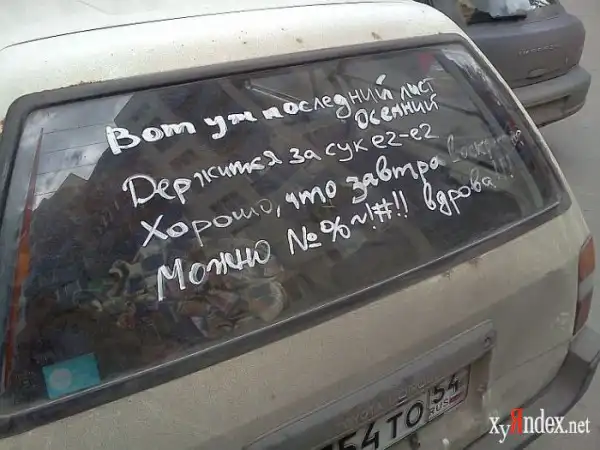 Вот уж последний лист
осенний
Держится за сук ег-ег
Хорошо, что завтра воскр
Можно №%~!#!! вдрова!!!
54 ТО 54
RUS
ХуЯndex.net